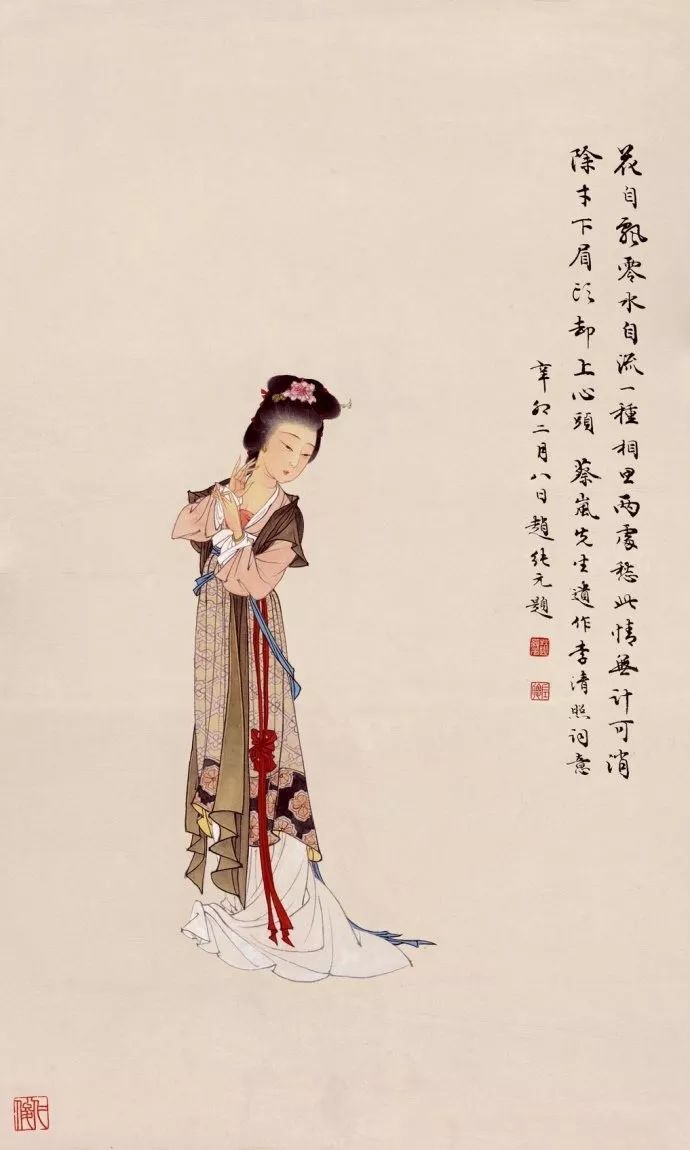 花自飄零水自流一種相思两處愁此情無計可消
除才下眉頭却上心頭 蔡嵐先生遺作李清照词意
辛卯二月八日趙純元題